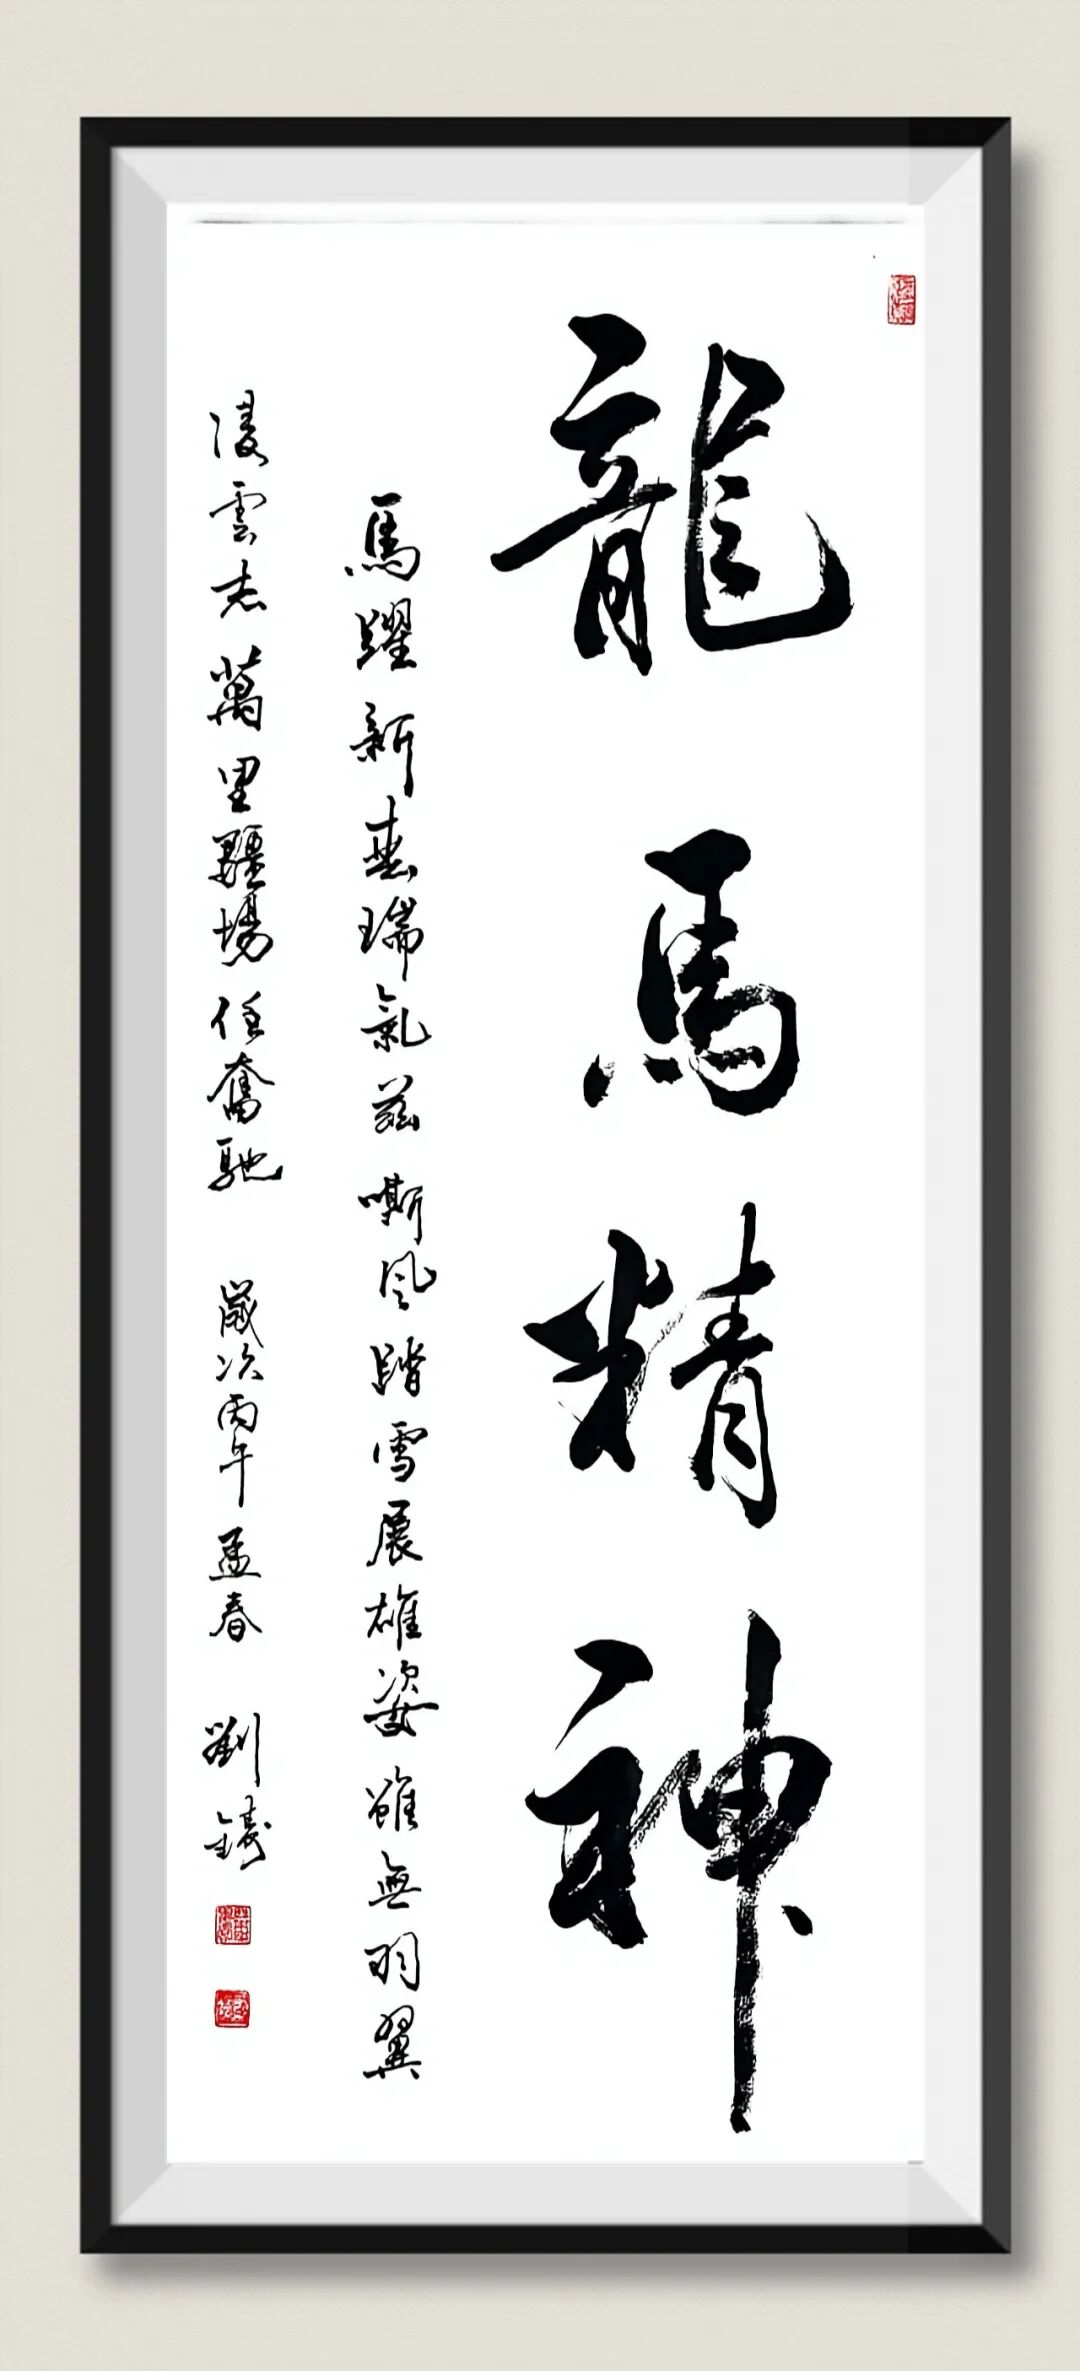 龍馬精神
馬躍新春瑞氣兹嘶風踏雪展雄姿雖無羽翼
凌雲志萬里疆場任奮馳 歲次丙午孟春 劉鑄